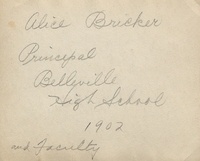 Alice Bricker
Principal
Bellyville
High School
1902
and Faculty